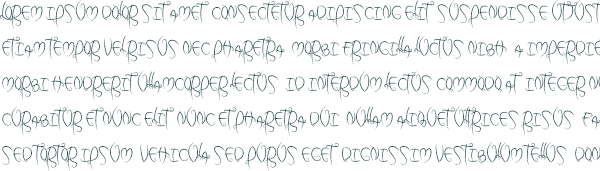 LOREM IPSUM DOLOR SIT AMET CONSECTETUR ADIPISCING ELIT SUSPENDISSE UT JUSTO
ETIAM TEMPOR VEL RISUS NEC PHARETRA MORBI FRINGILLA LUCTUS NIBH A IMPERDIE
MORBI HENDRERIT ULLAMCORPER LECTUS ID INTERDUM LECTUS COMMODO AT INTEGER N
CURABITUR ET NUNC ELIT NUNC ET PHARETRA DUI NULLAM ALIQUET ULTRICES RISUS FA
SED TORTOR IPSUM VEHICULA SED PURUS EGET DIGNISSIM VESTIBULUM TELLUS DON